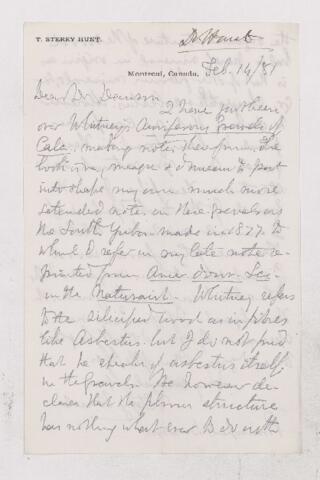 Dr Hunt
T. STERRY HUNT.
Montreal, Canada. Feb. 14/81
Dear Dr Dawson
I have just been
over Whitney's Auriferous Gravels of
Cala. making notes therefrom. The
book is meagre & I mean to put
into shape my own much more
extended notes on these gravels on
the South Yuba made in 1877 to
which I refer in my late note re-
printed from Amer. Journ. Sci.
in the Naturalist. Whitney refers
to the silicified wood as in fibres
like Asbestus but I do not find
that he speaks of asbestus itself
in the gravels. He however de-
clares that the fibrous structure
has nothing whatever to do with